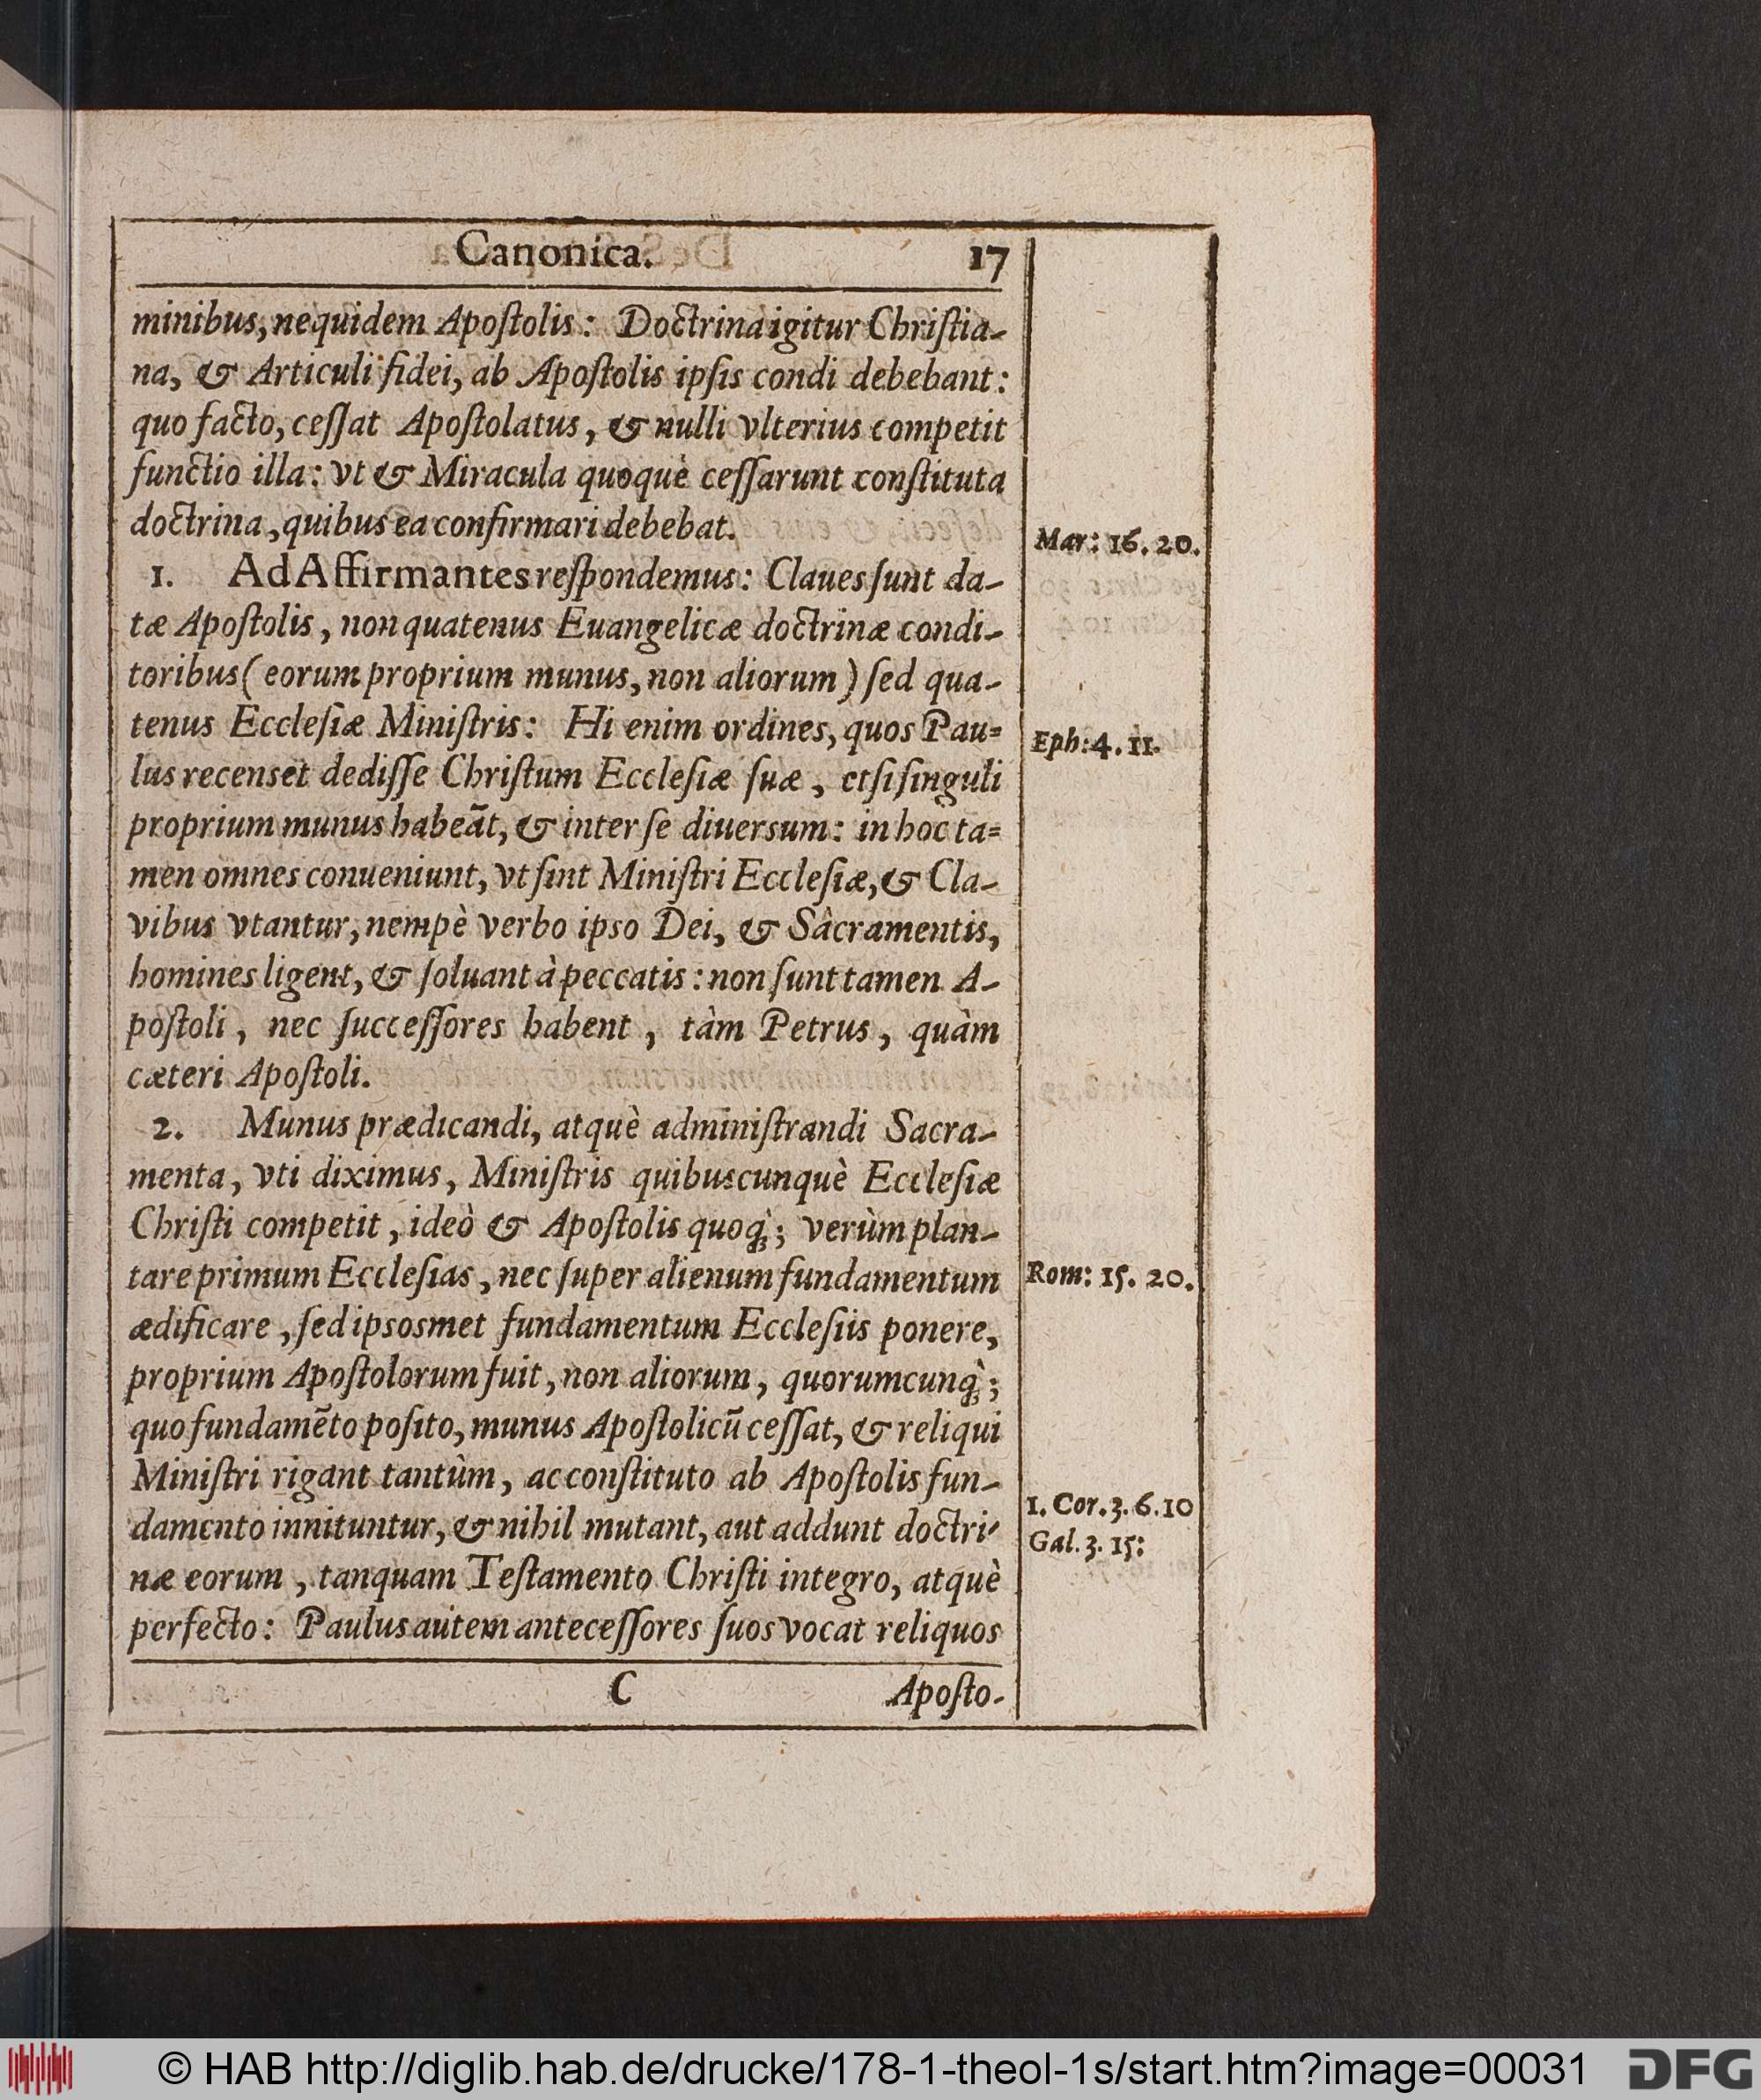 Canonica. 17
minibus, nequidem Apoſtolis: Doctrina igitur Chriſtia-
na, & Articuli fidei, ab Apoſtolis ipſis condi debebant:
quo facto, ceſſat Apoſtolatus, & nulli vlterius competit
functio illa: vt & Miracula quoquè ceſſarunt conſtituta
doctrina, quibus ea confirmari debebat.
Mar: 16. 20.
1. Ad Affirmantes reſpondemus: Claues ſunt da-
tæ Apoſtolis, non quatenus Euangelicæ doctrinæ condi-
toribus (eorum proprium munus, non aliorum) ſed qua-
tenus Eccleſiæ Miniſtris: Hi enim ordines, quos Pau-
Eph: 4. 11.
lus recenset dediſſe Chriſtum Eccleſiæ ſuæ, etſi ſinguli
proprium munus habeãt, & inter ſe diuersum: in hoc ta-
men omnes conueniunt, vt ſint Miniſtri Eccleſiæ, & Cla-
vibus vtantur, nempè verbo ipso Dei, & Sâcramentis,
homines ligent, & ſoluant à peccatis: non ſunt tamen A-
poſtoli, nec ſucceſſores habent, tàm Petrus, quàm
cæteri Apoſtoli.
2. Munus prædicandi, atquè adminiſtrandi Sacra-
menta, vti diximus, Miniſtris quibuscunquè Eccleſiæ
Chriſti competit, ideò & Apoſtolis quoq̀;; verùm plan-
tare primum Eccleſias, nec ſuper alienum fundamentum
Rom: 15. 20.
ædificare, ſed ipsosmet fundamentum Eccleſiis ponere,
proprium Apoſtolorum fuit, non aliorum, quorumcunq̀;
quo fundamẽto poſito, munus Apoſtolicũ ceſſat, & reliqui
Miniſtri rigant tantùm, ac conſtituto ab Apoſtolis fun-
1. Cor. 3. 6. 10
damento innituntur, & nihil mutant, aut addunt doctri-
Gal. 3. 15:
næ eorum, tanquam Teſtamento Chriſti integro, atquè
perfecto: Paulus autem anteceſſores ſuos vocat reliquos
C Apoſto-
© HAB http://diglib.hab.de/drucke/178-1-theol-1s/start.htm?image=00031
DFG